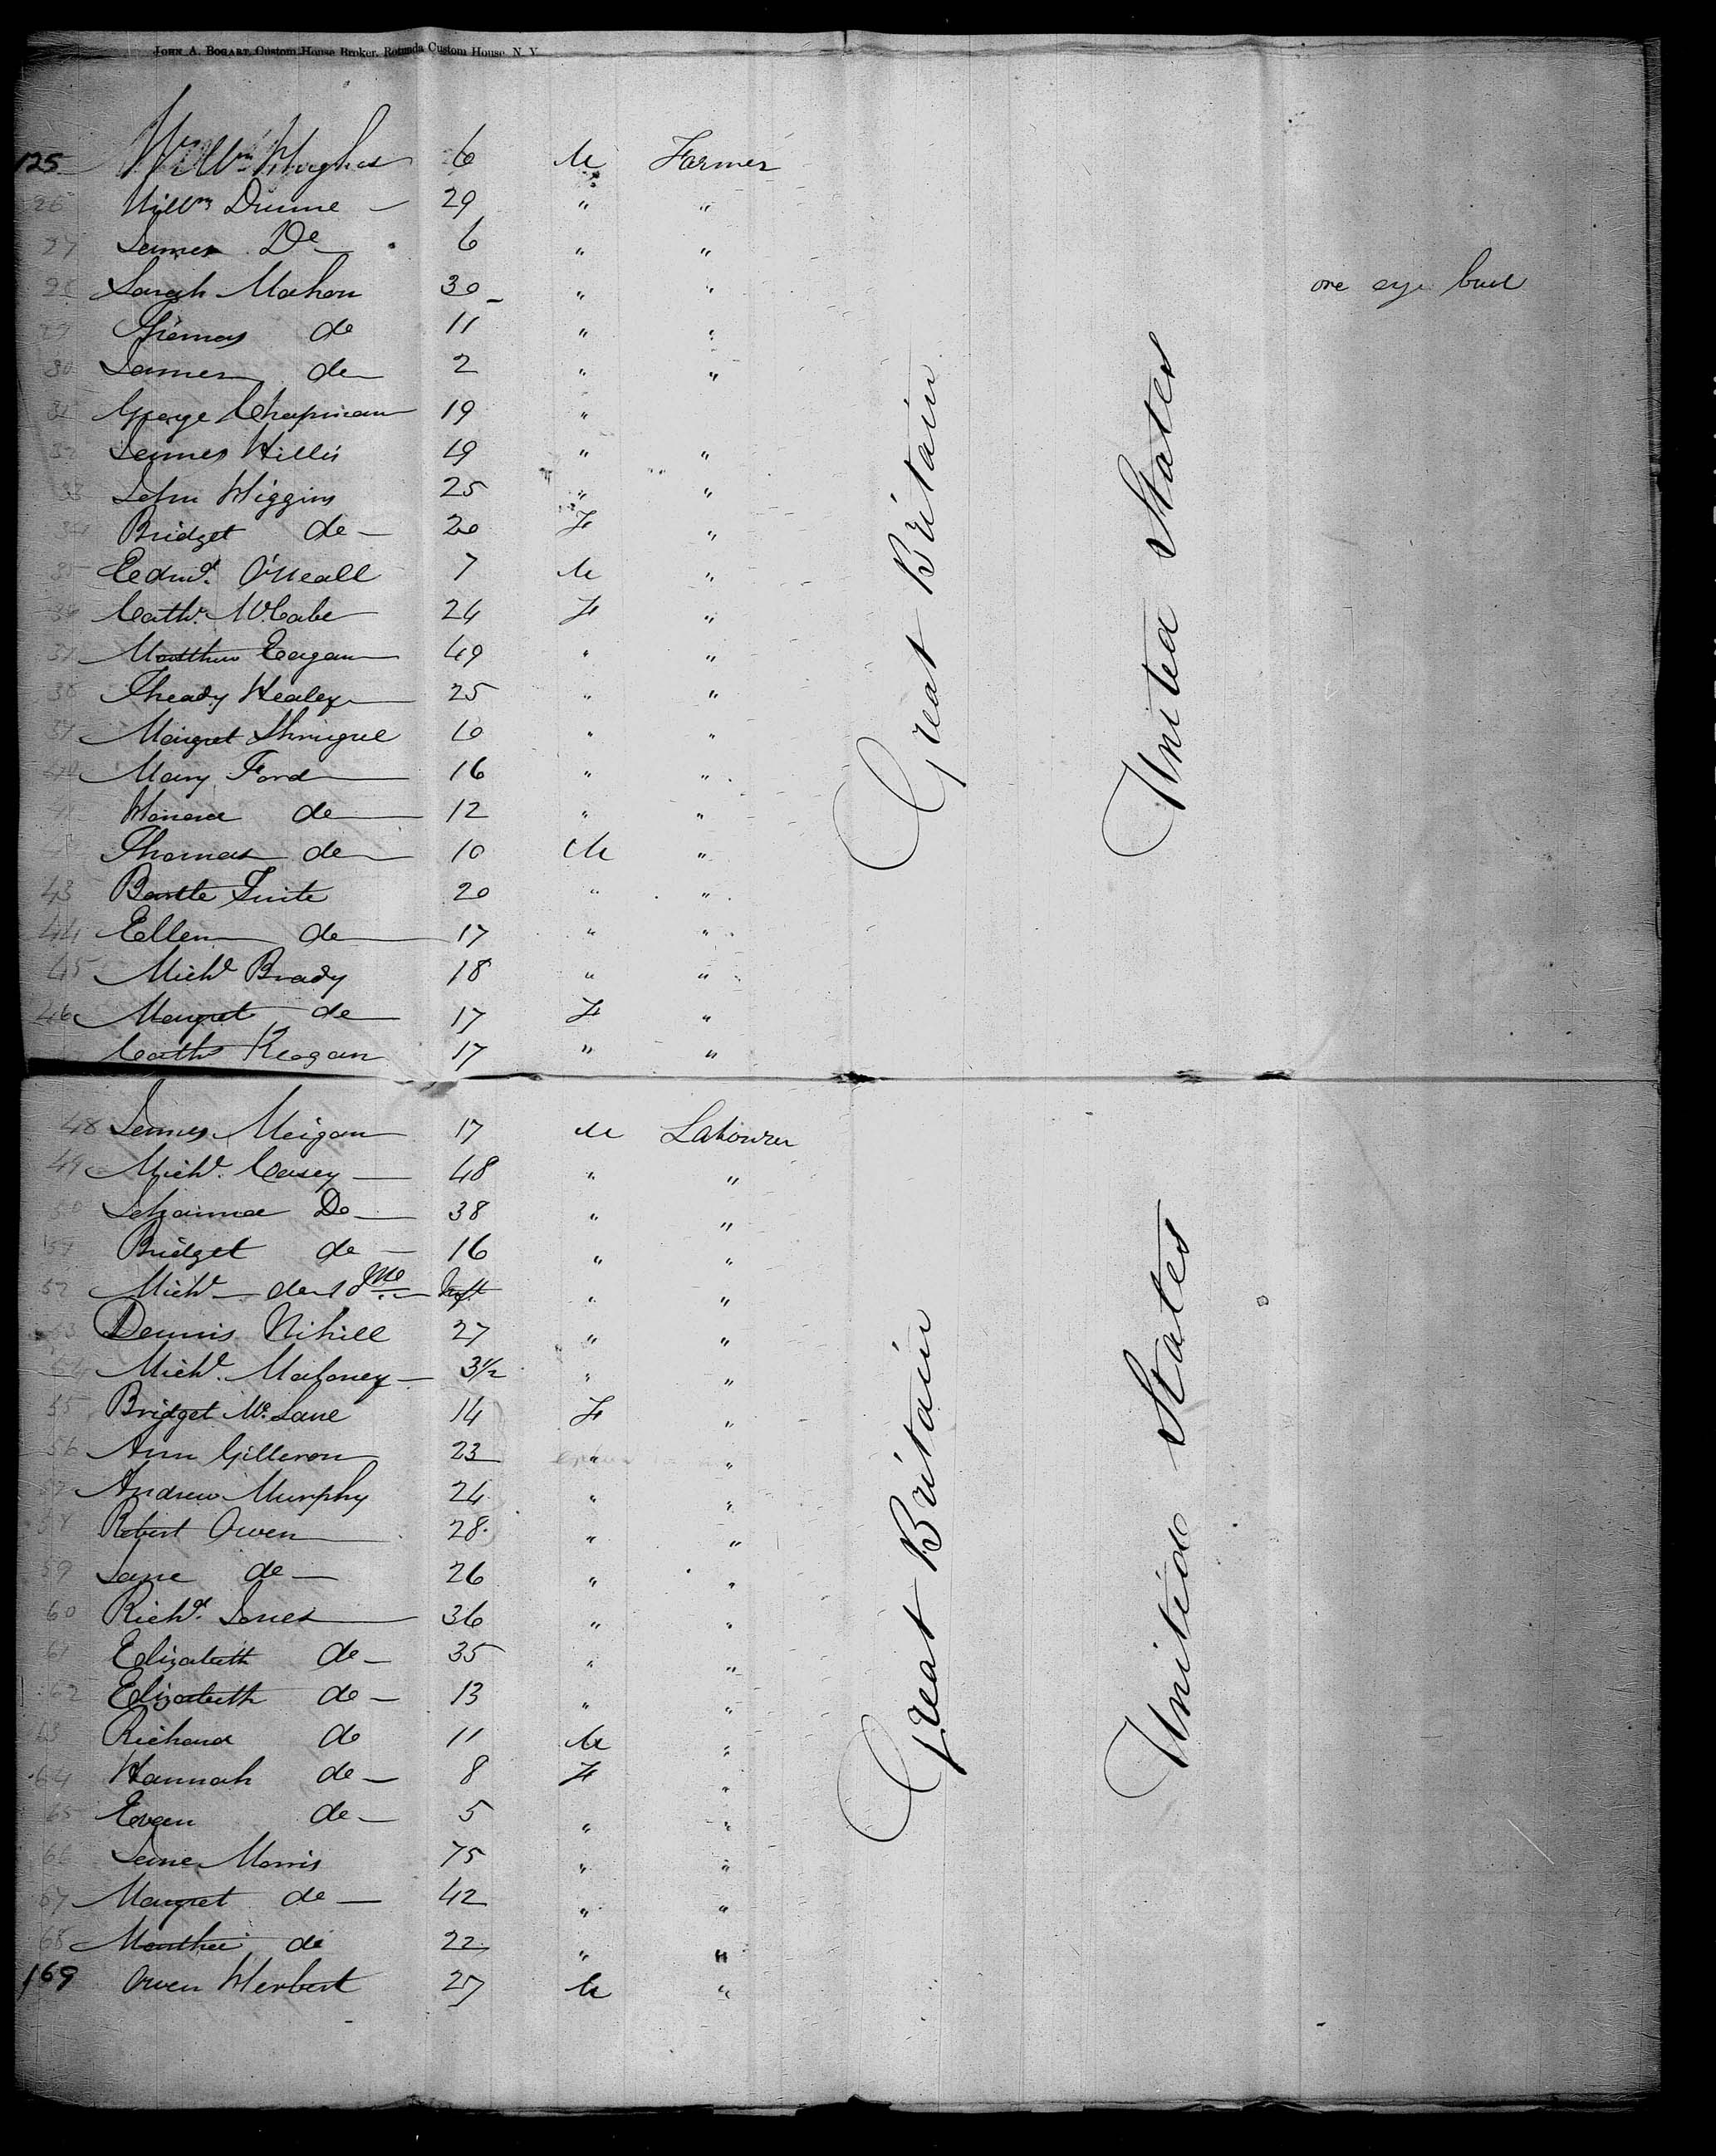 JOHN A. BOGART, Custom House Broker, Rotunda Custom House, N. Y.
125 Willm Hughes 6 M Farmer
26 Willm Dunne 29 " "
27 James Do 6 " "
28 Sarah Mahon 30 " " one eye
29 Thomas do 11 " "
30 James do 2 " "
31 George Chapman 19 "
32 James Willis 19 " "
33 John Higgins 25 " "
34 Bridget do 20 F "
35 Edmd. O'Neall 7 M "
36 Cath. McCabe 24 F "
37 Matthew Eagan 49 " "
38 Thady Healey 25 " "
39 Margret 10 " "
40 Mary Ford 16 " "
41 Honora do 12 " "
42 Thomas do 10 M "
43 Bartle Tuite 20 " "
44 Ellen do 17 " "
45 Michl Brady 18 " "
46 Margret do 17 F "
Cath Keogan 17 " "
Great Britain
United States
48 James Meigan 17 M Labourer
49 Michl. Casey 48 " "
50 Johanna Do 38 " "
51 Bridget do 16 " "
52 Michl do 10 Mo Inft " "
53 Dennis Nihill 27 " "
54 Michl. Maloney 3½ " "
55 Bridget Mc Lane 14 F "
56 Ann Gilleron 23 " "
57 Andrew Murphy 24 " "
58 Robert Owen 28 " "
59 Jane do 26 " "
60 Richd. Jones 36 " "
61 Elizabeth do 35 " "
62 Elizabeth do 13 " "
63 Richard do 11 M "
64 Hannah do 8 F "
65 Evan do 5 " "
66 Jane Morris 75 " "
67 Margret do 42 " "
68 do 22 " "
169 Owen Herbert 27 M "
Great Britain
United States